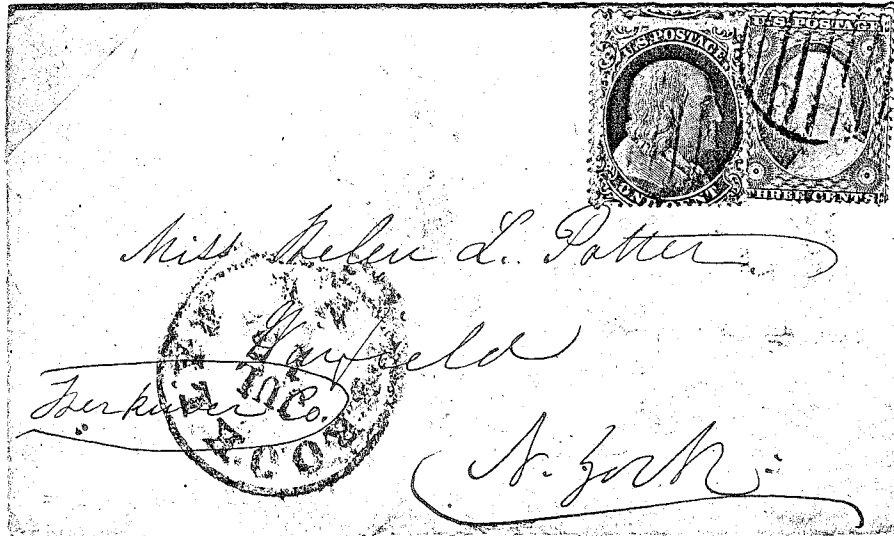 U.S. POSTAGE
U.S. POSTAGE
THREE CENTS
Miss Helen L. Potter
Fairfield
JUL
Herkimer Co.
N. York